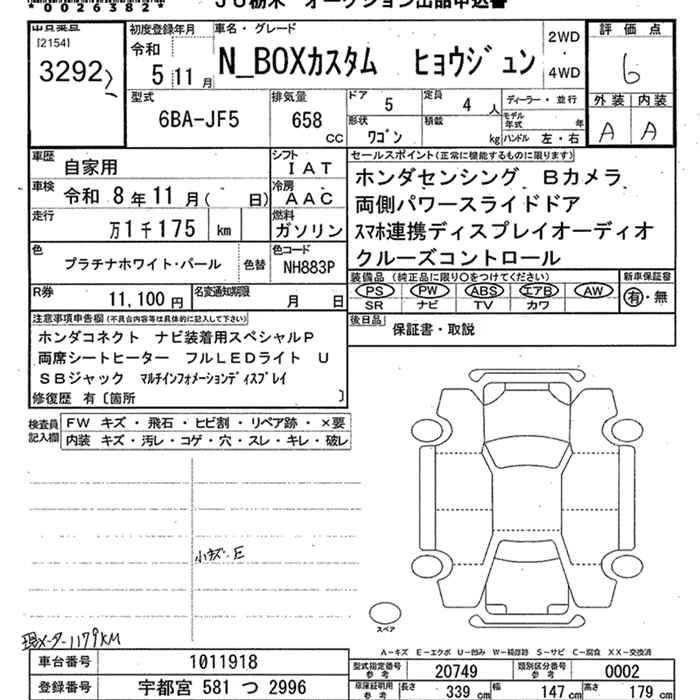 *0026382*
JU栃木 オークション出品申込書
[2154]
3292
初度登録年月
令和
5 11 月
車名・グレード
N_BOXカスタム ヒョウジュン
2WD
・
4WD
評価点
6
外装 内装
A A
型式
6BA-JF5
排気量
658
cc
ドア
5
定員
4 人
形状
ワゴン
積載
kg
ディーラー・並行
モデル年式 年
ハンドル 左・右
車歴
自家用
シフト
IAT
車検
令和 8 年 11 月( 日)
冷房
AAC
走行
万1千175 km
燃料
ガソリン
色
プラチナホワイト・パール
色替
色コード
NH883P
R券
11,100 円
名変通知期限
月 日
セールスポイント(正常に機能するものに限ります)
ホンダセンシング Bカメラ
両側パワースライドドア
スマホ連携ディスプレイオーディオ
クルーズコントロール
装備品 (純正品に限り○をつけてください)
PS PW ABS エアB AW
SR ナビ TV カワ
新車保証書
有・無
後日品
保証書・取説
注意事項申告欄(不具合内容等は具体的に記入して下さい)
ホンダコネクト ナビ装着用スペシャルP
両席シートヒーター フルLEDライト U
SBジャック マルチインフォメーションディスプレイ
修復歴 有〔箇所 〕
検査員記入欄
FW キズ・飛石・ヒビ割・リペア跡・×要
内装 キズ・汚レ・コゲ・穴・スレ・キレ・破レ
小キズ・E
現メーター1179KM
スペア
A-キズ E-エクボ U-凹み W-補修跡 S-サビ C-腐食 XX-交換済
車台番号
1011918
登録番号
宇都宮 581 つ 2996
型式指定番号
参考
20749
類別区分番号
参考
0002
車庫証明用
参考
長さ 339 cm
幅 147 cm
高さ 179 cm